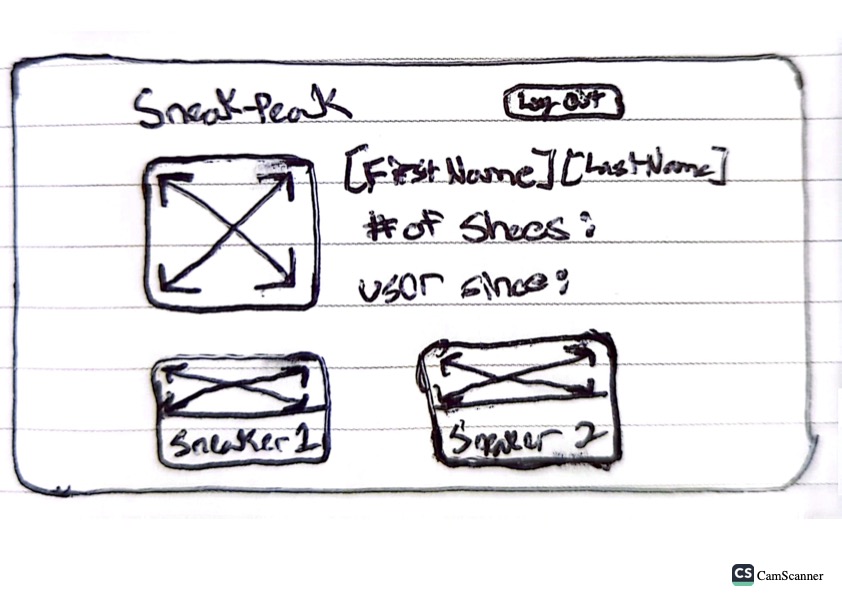 Sneak-Peak
Log-Out
[First Name] [Last Name]
# of Shoes:
User since:
Sneaker 1
Sneaker 2
CS CamScanner